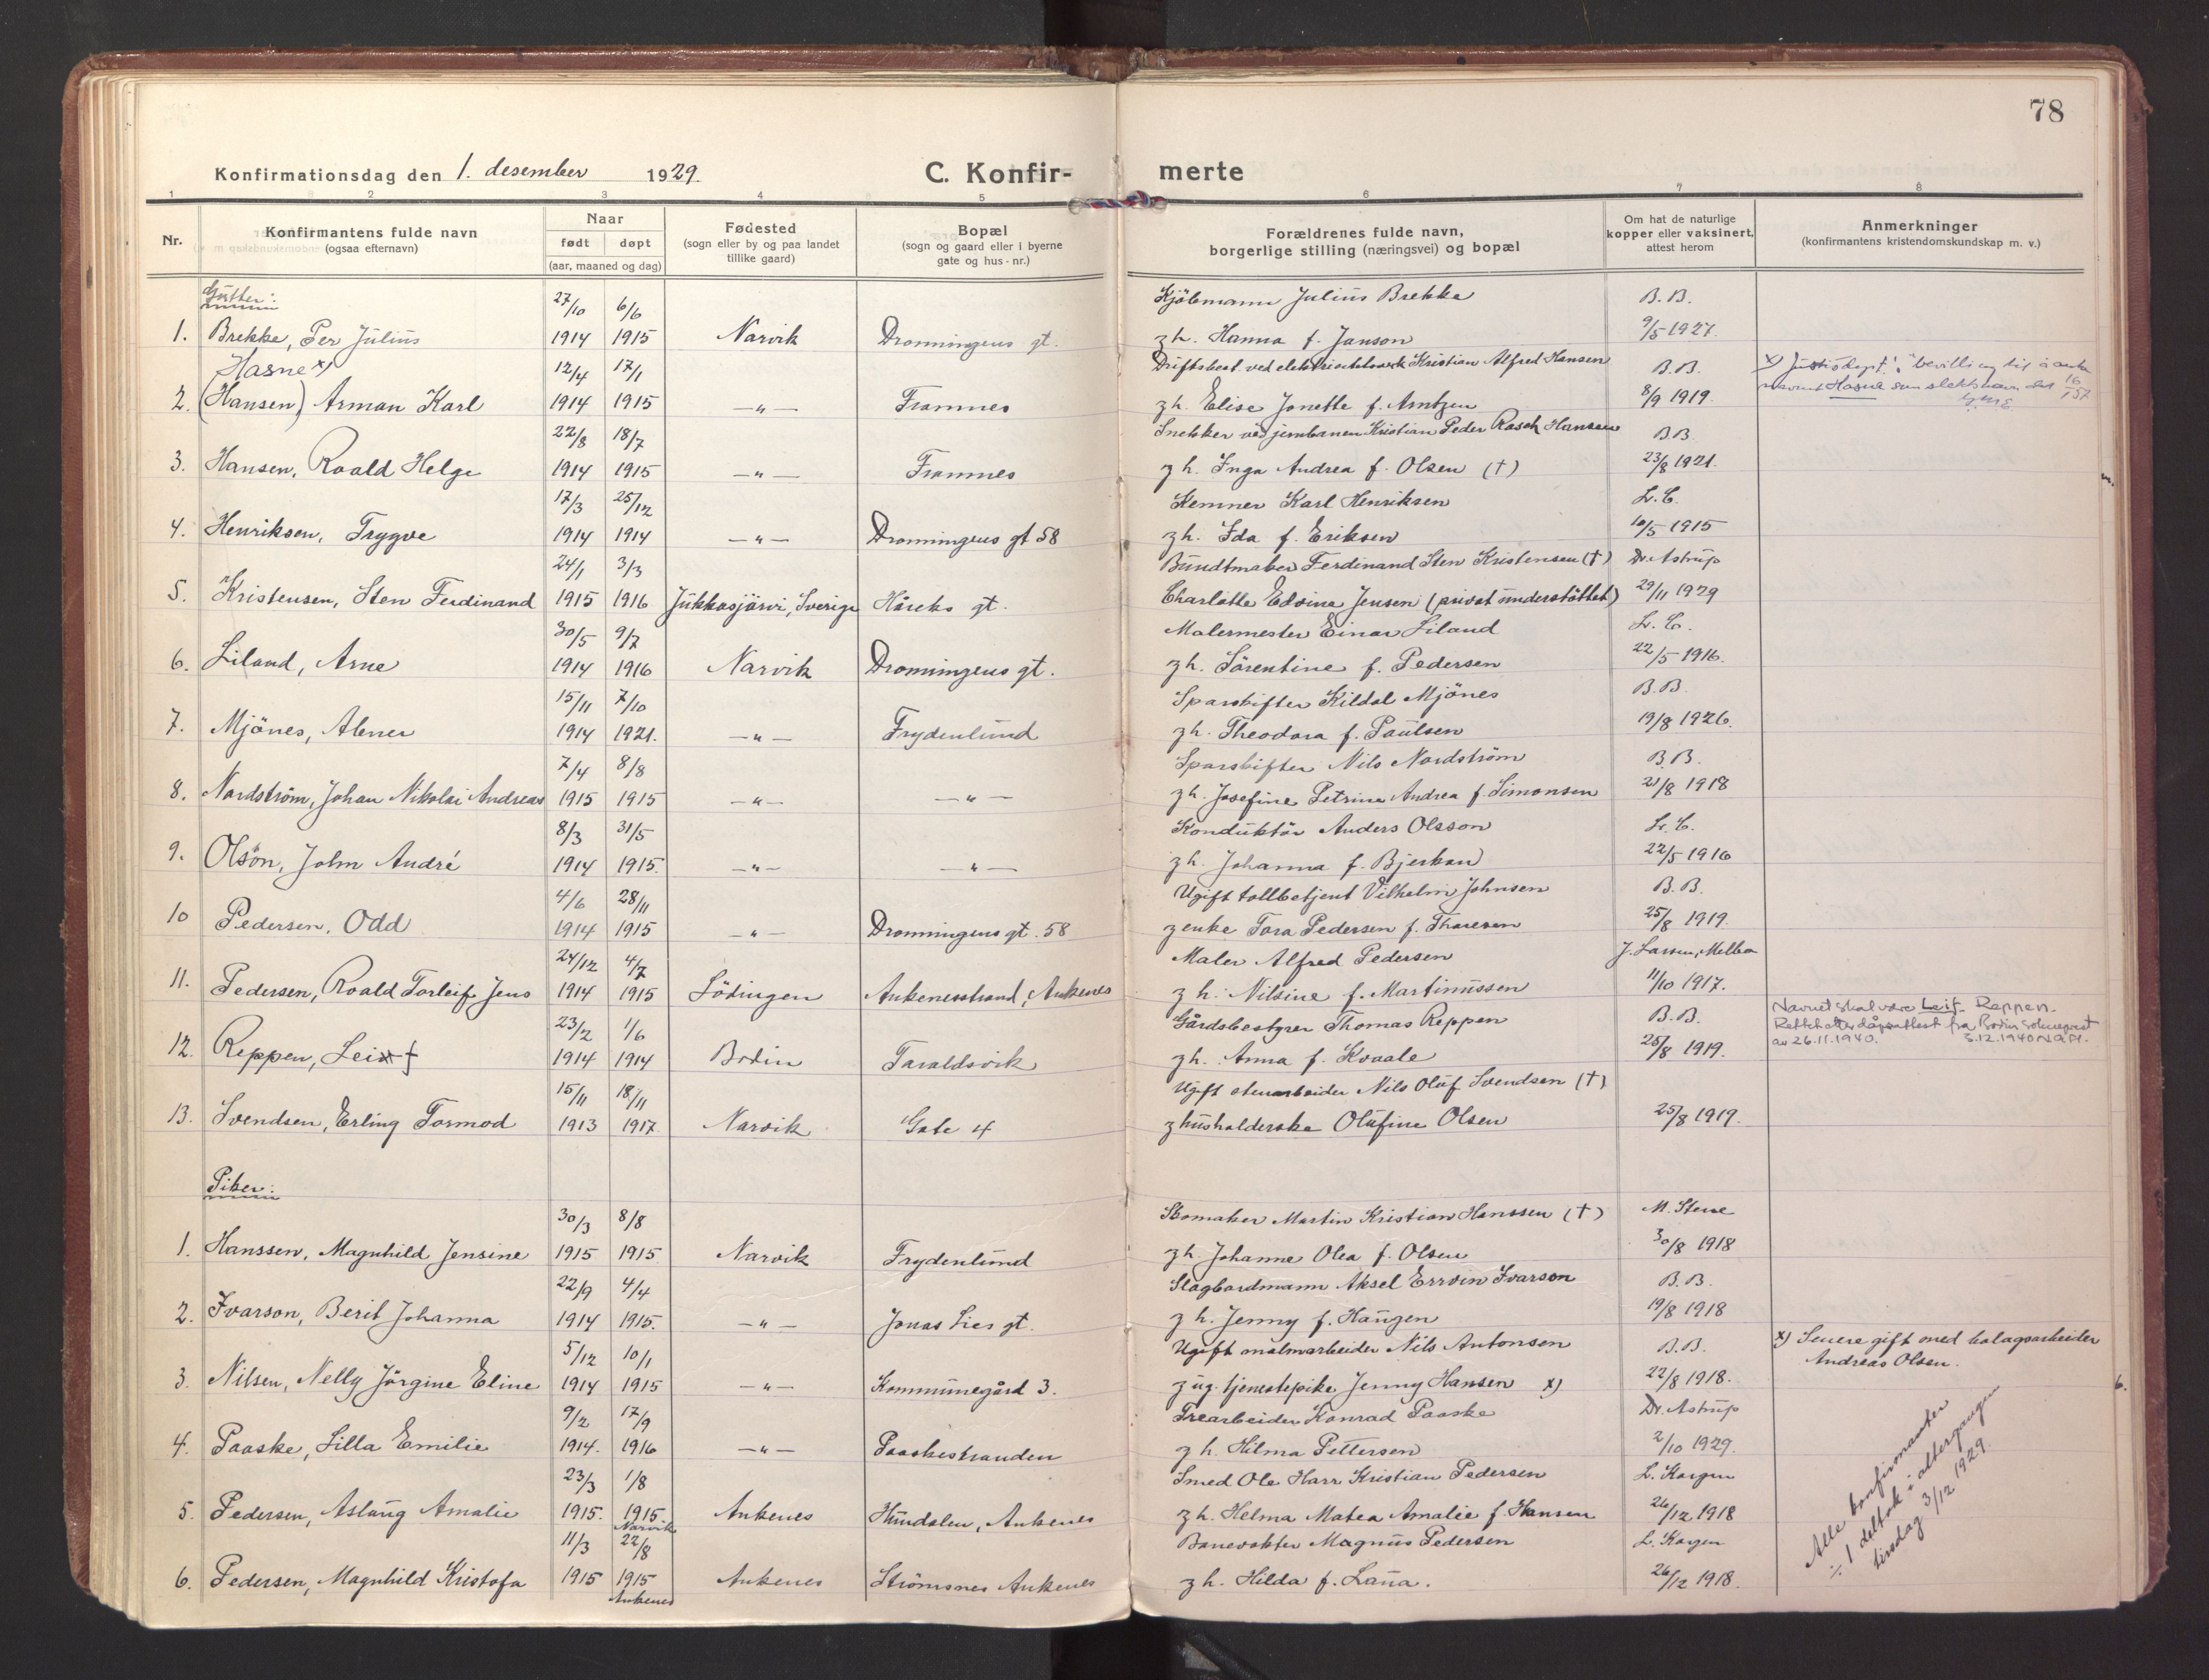 78
Konfirmationsdag den 1. desember 1929. C. Konfir- merte
1 2 3 4 5 6 7 8
Nr. Konfirmantens fulde navn (ogsaa efternavn) Naar født døpt (aar, maaned og dag) Fødested (sogn eller by og paa landet tillike gaard) Bopæl (sogn og gaard eller i byerne gate og hus-nr.) Forældrenes fulde navn, borgerlige stilling (næringsvei) og bopæl Om hat de naturlige kopper eller vaksinert, attest herom Anmerkninger (konfirmantens kristendomskundskap m. v.)
Gutter:
27/10 6/6 Kjöbmann Julius Brekke B. B.
1. Brekke, Per Julius 1914 1915 Narvik Dronningens gt. g h. Hanna f. Janson 9/5 1927.
Hasne x) 12/4 17/1 Driftsbest. ved elektrisitetsverk Kristian Alfred Hansen B. B. x) Justisdept.: bevilling til å anta
2. (Hansen) Arman Karl 1914 1915 —"— Framnes g h. Elise Jonette f. Arntzen 8/9 1919. navnet Hasne som slektsnavn
22/8 18/7 Snekker ved jernbanen Kristian Peder Rasch Hansen B. B.
3. Hansen, Roald Helge 1914 1915 —"— Framnes g h. Inga Andrea f. Olsen (†) 23/8 1921.
17/3 25/12 Kemner Karl Henriksen L. C.
4. Henriksen, Trygve 1914 1914 —"— Dronningens gt 58 g h. Ida f. Eriksen 10/5 1915
24/1 3/3 Bundtmaker Ferdinand Sten Kristensen (†) Dr. Astrup
5. Kristensen, Sten Ferdinand 1915 1916 Jukkasjärvi, Sverige Håreks gt. Charlotte Edvine Jensen (privat understöttet) 29/11 1929
30/5 9/7 Malermester Einar Liland L. C.
6. Liland, Arne 1914 1916 Narvik Dronningens gt. g h. Sörentine f. Pedersen 22/5 1916.
15/11 7/10 Sparskifter Kildal Mjönes B. B.
7. Mjönes, Abner 1914 1921. —"— Frydenlund g h. Theodora f. Paulsen 19/8 1926.
7/4 8/8 Sporskifter Nils Nordström B. B.
8. Nordström, Johan Nikolai Andreas 1915 1915 —"— —"— g h. Josefine Petrine Andrea f. Simonsen 21/8 1918
8/3 31/5 Konduktör Anders Olsson L. C.
9. Olsön, John André 1914 1915. —"— —"— g h. Johanna f. Bjerkan 22/5 1916
4/6 28/11 Ugift tollbetjent Vilhelm Johnsen B. B.
10 Pedersen, Odd 1914 1915 —"— Dronningens gt. 58 g enke Tora Pedersen f. Thoresen 25/8 1919.
24/12 4/7 Maler Alfred Pedersen J. Larsen, Melbo
11. Pedersen, Roald Torleif Jens 1914 1915 Lödingen Ankenesstrand, Ankenes g h. Nilsine f. Martinussen 11/10 1917.
23/2 1/6 Gårdsbestyrer Thomas Reppen B. B. Navnet skal være Leif Reppen.
12. Reppen, Leif 1914 1914 Bodin Taraldsvik g h. Anna f. Kvaale 25/8 1919. Rettet etter dåpsattest fra Bodin sokneprest av 26.11.1940. 5.12.1940
15/11 18/11 Ugift stenarbeider Nils Oluf Svendsen (†)
13. Svendsen, Erling Tormod 1913 1917. Narvik Gate 4 g husholderske Olufine Olsen 25/8 1919.
Piker:
30/3 8/8 Skomaker Martin Kristian Hanssen (†) M. Stene
1. Hanssen, Magnhild Jensine 1915 1915 Narvik Frydenlund g h. Johanne Olea f. Olsen 30/8 1918
22/9 4/4 Slagbordmann Aksel Erwin Ivarson B. B.
2. Ivarson, Berit Johanna 1914 1915. —"— Jonas Lies gt. g h. Jenny f. Haugen 19/8 1918
5/12 10/1 Ugift malmarbeider Nils Antonsen B. B. x) Senere gift med bolagsarbeider
3. Nilsen, Nelly Jörgine Eline 1914 1915 —"— Kommunegård 3. g ug. tjenestepike Jenny Hansen x) 22/8 1918. Andreas Olsen.
9/2 17/9 Trearbeider Konrad Paaske Dr. Astrup
4. Paaske, Lilla Emilie 1914. 1916 —"— Paaskestranden g h. Hilma Pettersen 2/10 1929.
23/3 1/8 Smed Ole Harr Kristian Pedersen L. Korgen
5. Pedersen, Aslaug Amalie 1915. 1915 Narvik Ankenes Hundalen, Ankenes g h. Helma Matea Amalie f. Hansen 26/12 1918
11/3 22/8 Banevokter Magnus Pedersen L. Korgen
6. Pedersen, Magnhild Kristofa 1915 1915 Ankenes Ankenes Strömsnes Ankenes g h. Hilda f. Lana. 26/12 1918.
Alle konfirmanter
÷ 1 deltok i altergangen
tirsdag 3/12 1929.